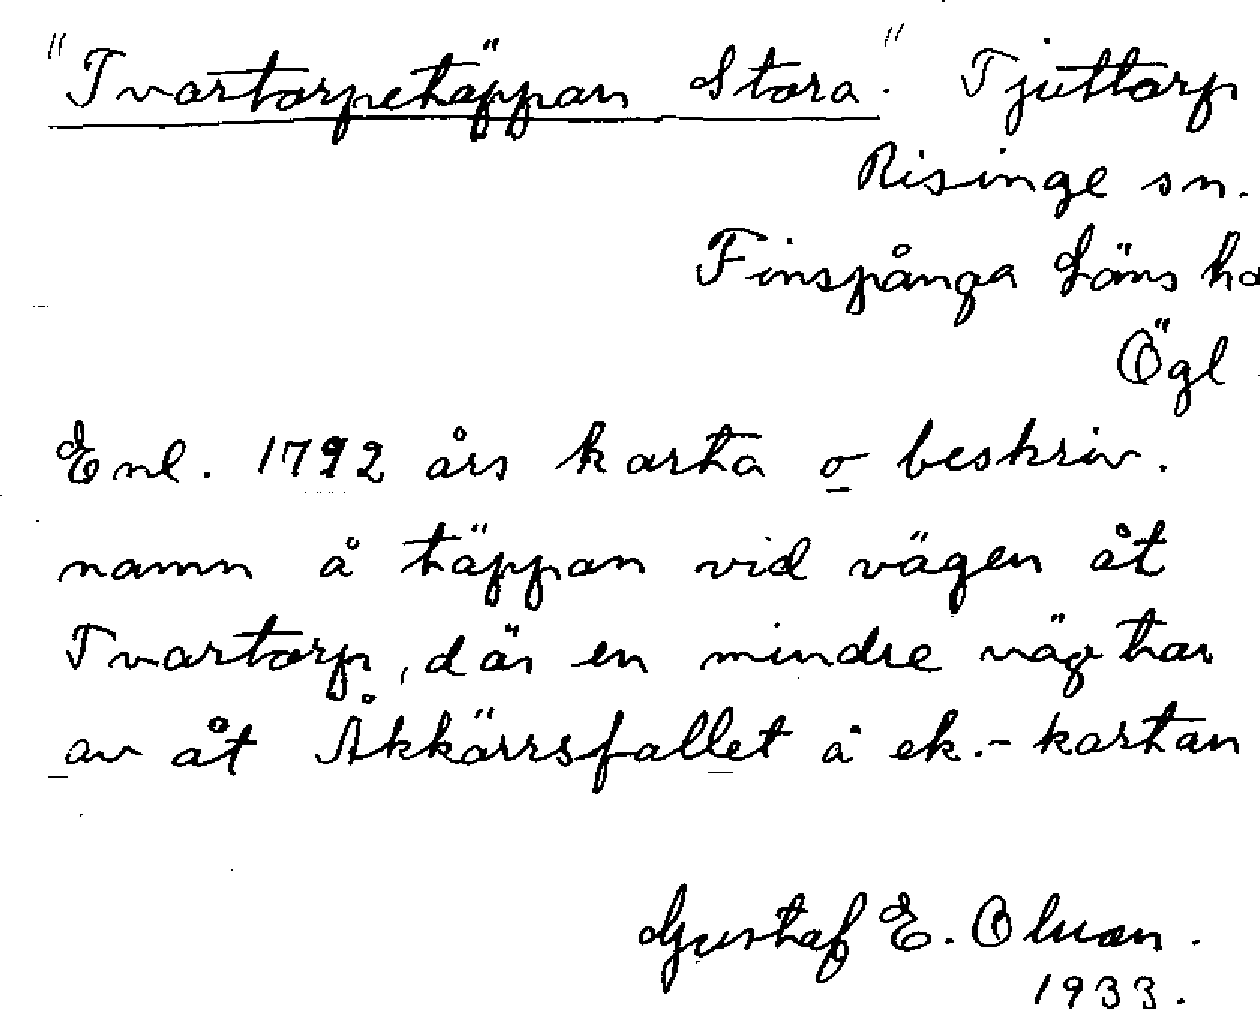 "Tvartorpetäppan Stora". Tjuttorp
Risinge sn.
Finspånga Läns
Ögl
Enl. 1792 års karta o beskriv.
namn å täppan vid vägen åt
Tvartorp, där en mindre väg tar
av åt Åkkärrsfallet å ek.-kartan
Gustaf E. Olsson.
1933.